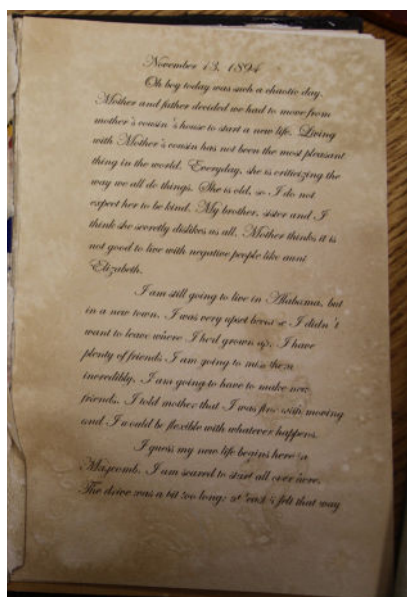 November 13, 1894
Oh boy today was such a chaotic day.
Mother and father decided we had to move from
mother's cousin's house to start a new life. Living
with Mother's cousin has not been the most pleasant
thing in the world. Everyday, she is criticizing the
way we all do things. She is old, so I do not
expect her to be kind. My brother, sister and I
think she secretly dislikes us all. Mother thinks it is
not good to live with negative people like aunt
Elizabeth.
I am still going to live in Alabama, but
in a new town. I was very upset because I didn't
want to leave where I had grown up. I have
plenty of friends I am going to miss them
incredibly. I am going to have to make new
friends. I told mother that I was fine with moving
and I would be flexible with whatever happens.
I guess my new life begins here in
Maycomb. I am scared to start all over here.
The drive was a bit too long; at least I felt that way